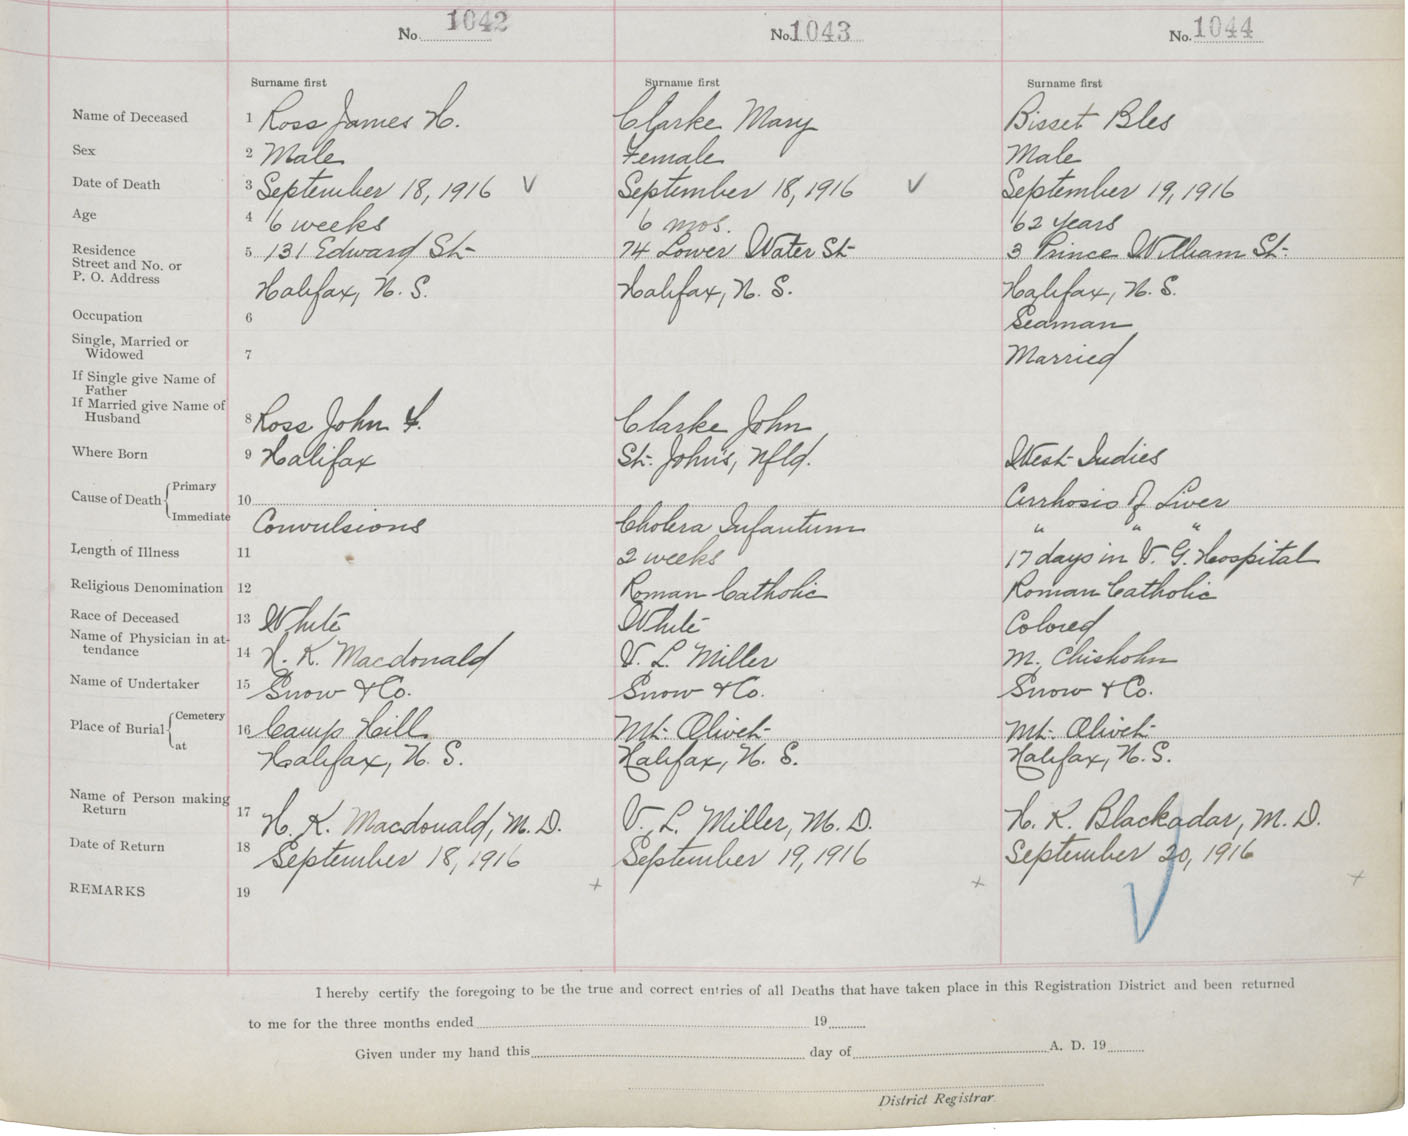 No. 1042 No. 1043 No. 1044
Surname first Surname first Surname first
Name of Deceased 1 Ross James H. Clarke Mary Bisset Bles
Sex 2 Male Female Male
Date of Death 3 September 18, 1916 V September 18, 1916 V September 19, 1916
Age 4 6 weeks 6 mos. 62 years
Residence
Street and No. or 5 131 Edward St- 74 Lower Water St- 3 Prince William St-
P. O. Address Halifax, N. S. Halifax, N. S. Halifax, N. S.
Occupation 6 Seaman
Single, Married or
Widowed 7 Married
If Single give Name of
Father
If Married give Name of
Husband 8 Ross John F. Clarke John
Where Born 9 Halifax St. John's, Nfld. West Indies
Primary
Cause of Death 10 Cirrhosis of Liver
Immediate Convulsions Cholera Infantum " " "
Length of Illness 11 2 weeks 17 days in V. G. Hospital
Religious Denomination 12 Roman Catholic Roman Catholic
Race of Deceased 13 White White Colored
Name of Physician in at-
tendance 14 H. K. Macdonald V. L. Miller M. Chisholm
Name of Undertaker 15 Snow & Co. Snow & Co. Snow & Co.
Cemetery
Place of Burial 16 Camp Hill Mt. Olivet Mt. Olivet
at Halifax, N. S. Halifax, N. S. Halifax, N. S.
Name of Person making
Return 17 H. K. Macdonald, M. D. V. L. Miller, M. D. H. K. Blackadar, M. D.
Date of Return 18 September 18, 1916 September 19, 1916 September 20, 1916
REMARKS 19 + + +
I hereby certify the foregoing to be the true and correct entries of all Deaths that have taken place in this Registration District and been returned
to me for the three months ended 19
Given under my hand this day of A. D. 19
District Registrar.